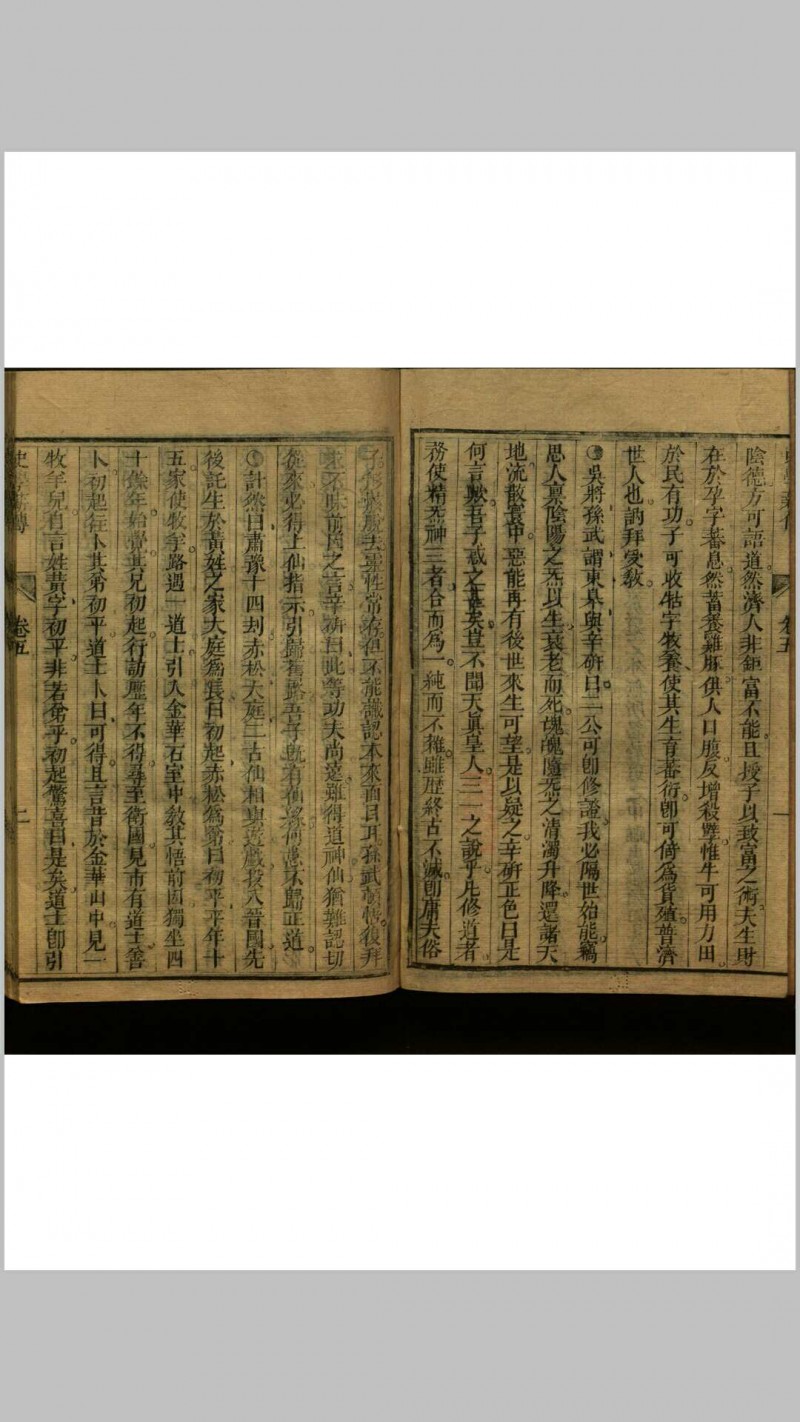 陰德方可語道然濟人非鉅富不能且授子以致富之術夫生財
在於孕字蕃息然蓄養雞豚供人口腹反增殺孽惟牛可用力田
於民有功子可收牯字牧養使其生育蕃衍卽可倚為貨殖普濟
世人也訥拜受敎
吳將孫武謂東臯與辛硏曰二公可卽修證我必陽世始能竊
思人禀陰陽之炁以生衰老而死魂魄隨炁之清濁升降還諸天
地流散寰中惡能再有後世來生可望是以疑之辛硏正色曰是
何言歟吾子惑之甚矣豈不聞天眞皇人三一之說乎凡修道者
務使精炁神三者合而為一純而不雜雖歷終古不滅卽庸夫俗
子形骸廢去靈性常存但不能識認本來面目耳孫武頓悟復拜
求不昧前因之言辛硏曰此等功夫尚遠難得道神仙猶難認切
從來必得上仙指示引歸舊路吾子旣有仙緣何患不歸正道
計然曰肅豫十四刦赤松大庭二古仙相與遊戲拔八音國先
後託生於黃姓之家大庭為長曰初起赤松為弟曰初平平年十
五家使牧羊路遇一道士引入金華石室中敎其悟前因獨坐四
十餘年始覺其兄初起行訪歷年不得尋至衛國見市有道士善
卜初起往卜其弟初平道士卜曰可得且言昔於金華山中見一
牧羊兒自言姓黃字初平非若弟乎初起驚喜曰是矣道士卽引
卷五
二